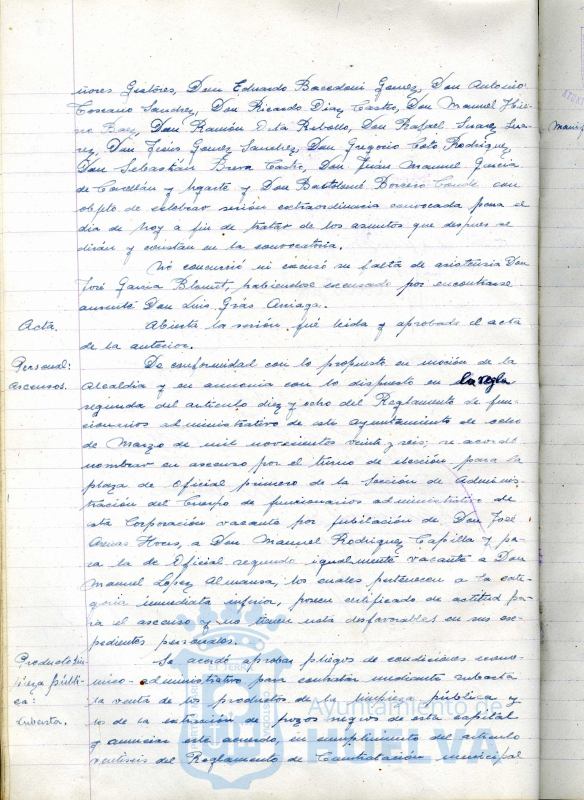 ñores Gestores, Don Eduardo Bacedoni Gomez, Don Antonio
Toscano Sanchez, Don Ricardo Diaz Castro, Don Manuel
Don Ramón de la Don Rafael Suarez Sua
rez, Don Jesús Gomez Sanchez, Don Gregorio Coto Rodriguez,
Don Sebastián Brera Castro, Don Juan Manuel García
de Castellán y Ugarte y Don Bartolomé Borrero Conde con
objeto de celebrar sesión extraordinaria convocada para el
dia de hoy a fin de tratar de los asuntos que despues se
dirán y constan en la convocatoria.
No concurrió ni excusó su falta de asistencia Don
José García habiendose excusado por encontrarse
ausente Don Luis Grás Arriaga.
Acta.
Abierta la sesión, fué leida y aprobada el acta
de la anterior.
Personal:
Ascensos.
De conformidad con lo propuesto en moción de la
Alcaldia y en armonia con lo dispuesto en la regla
segunda del articulo diez y ocho del Reglamento de fun-
cionarios administrativo de este Ayuntamiento de ocho
de Marzo de mil novecientos veinte y seis, se acordó
nombrar en ascenso por el turno de elección para la
plaza de Oficial primero de la Sección de Adminis-
tración del Cuerpo de funcionarios administrativo de
esta Corporación vacante por jubilación de Don José
Arenas a Don Manuel Rodriguez Capilla y pa-
ra la de Oficial segundo igualmente vacante a Don
Manuel Lopez Almansa, los cuales pertenecen a la cate-
goria inmediata inferior, poseen certificado de actitud pa-
ra el ascenso y no tienen nota desfavorables en sus ex-
pedientes personales.
Producto lim-
pieza públi-
ca:
Subasta.
Se acordó aprobar pliegos de condiciones econo-
mico-administrativo para contratar mediante subasta
la venta de los productos de la limpieza pública y
lo de la extracción de pozos negros de esta capital
y anunciar este acuerdo, en cumplimiento del articulo
veintiseis del Reglamento de Contratación municipal
Ayuntamiento de
HUELVA